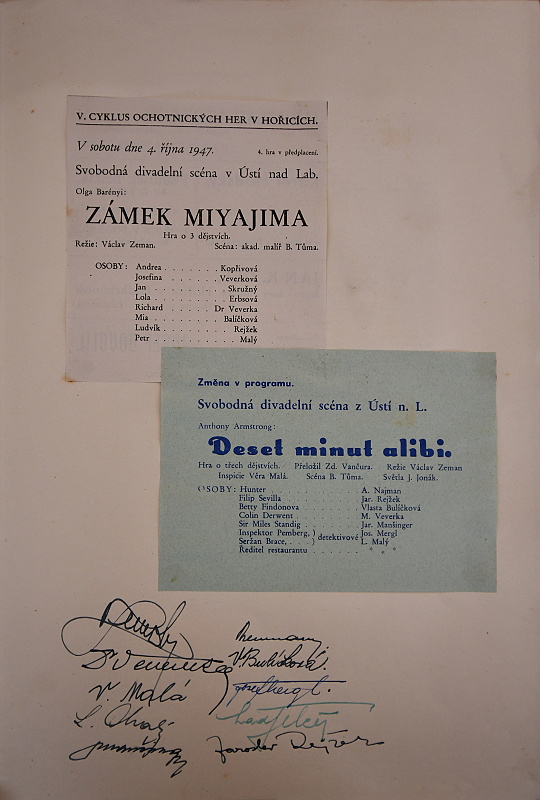 V. CYKLUS OCHOTNICKÝCH HER V HOŘICÍCH.
V sobotu dne 4. října 1947. 4. hra v předplacení.
Svobodná divadelní scéna v Ústí nad Lab.
Olga Barényi:
ZÁMEK MIYAJIMA
Hra o 3 dějstvích.
Režie: Václav Zeman. Scéna: akad. malíř B. Tůma.
OSOBY: Andrea . . . . . . . Kopřivová
Josefina . . . . . . . Veverková
Jan . . . . . . . . . Skružný
Lola . . . . . . . . Erbsová
Richard . . . . . . Dr Veverka
Mia . . . . . . . . . Balíčková
Ludvík . . . . . . . . Rejžek
Petr . . . . . . . . . Malý
Změna v programu.
Svobodná divadelní scéna z Ústí n. L.
Anthony Armstrong:
Deset minut alibi.
Hra o třech dějstvích. Přeložil Zd. Vančura. Režie Václav Zeman
Inspicie Věra Malá. Scéna B. Tůma. Světla J. Jonák.
OSOBY: Hunter . . . . . . . . . A. Najman
Filip Sevilla . . . . . . . . Jar. Rejžek
Betty Findonova . . . . . . Vlasta Bulíčková
Colin Derwent . . . . . . . M. Veverka
Sir Miles Standig . . . . . . Jar. Manšinger
Inspektor Pemberg, ) detektivové ( Jos. Mergl
Seržan Brace, . . ) detektivové ( L. Malý
Ředitel restaurantu . . . . . * * *
V. Bulíčková.
V. Malá
Jaroslav Rejžek